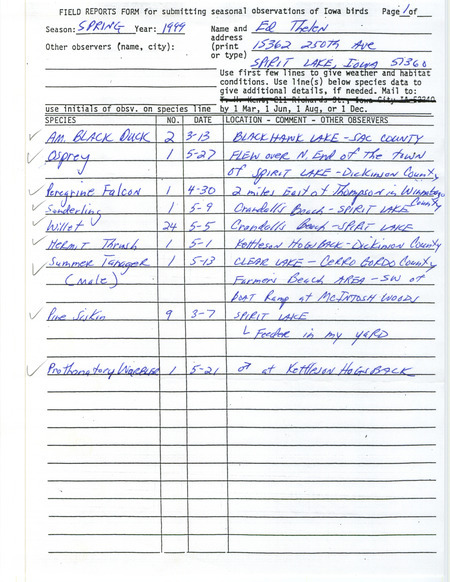 FIELD REPORTS FORM for submitting seasonal observations of Iowa birds Page 1 of
Season: SPRING Year: 1999 Name and Ed Thelen
address
Other observers (name, city): (print 15362 250th Ave
or type) SPIRIT LAKE, Iowa 51360
Use first few lines to give weather and habitat
conditions. Use line(s) below species data to
give additional details, if needed. Mail to:
use initials of obsv. on species line by 1 Mar, 1 Jun, 1 Aug, or 1 Dec.
SPECIES NO. DATE LOCATION - COMMENT - OTHER OBSERVERS
✓ Am. BLACK Duck 2 3-13 BLACK HAWK LAKE - SAC COUNTY
✓ Osprey 1 5-27 FLEW over N. End of the town
of SPIRIT LAKE - Dickinson County
✓ Peregrine Falcon 1 4-30 2 miles East of Thompson in Winnebago County
✓ Sanderling 1 5-9 Crandall's Beach - SPIRIT LAKE
✓ Willet 24 5-5 Crandall's Beach - SPIRIT LAKE
✓ Hermit Thrush 1 5-1 Kettleson HOGSBACK - Dickinson County
✓ Summer Tanager 1 5-13 CLEAR LAKE - CERRO GORDO County
(male) Farmers Beach AREA - SW of
BOAT Ramp at McINTOSH WOODS
✓ Pine Siskin 9 3-7 SPIRIT LAKE
Feeder in my yARD
✓ Prothonotary WARBLER 1 5-21 ♂ at Kettleson HOGSBACK